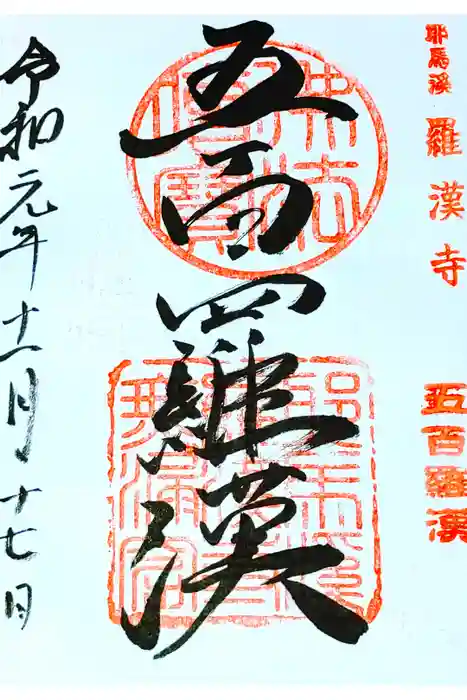 耶馬溪 羅漢寺 五百羅漢
五百羅漢
令和元年十一月十七日